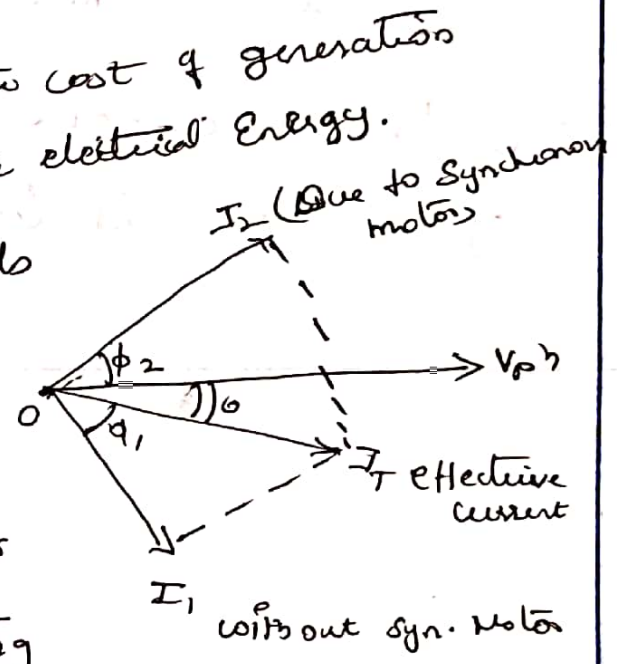 cost of generation
electrical Energy.
I₂ (Due to Synchronous
motor)
ϕ2
Vph
O
θ
ϕ₁
I_T effective
current
I₁
without syn. Motor